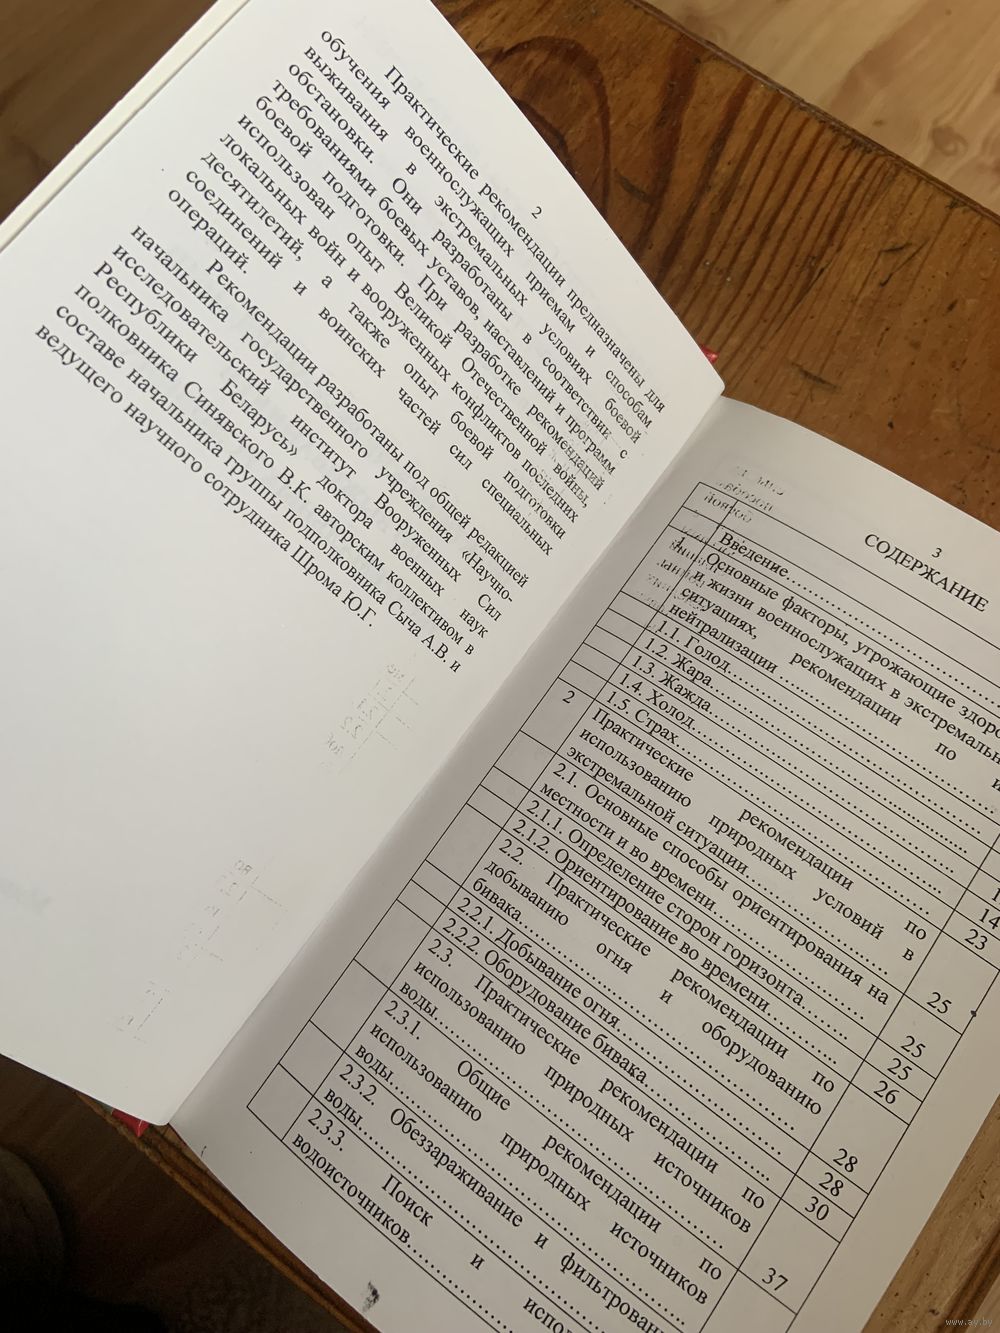 2
Практические рекомендации предназначены для
обучения военнослужащих приемам и способам
выживания в экстремальных условиях боевой
обстановки. Они разработаны в соответствии с
требованиями боевых уставов, наставлений и программ
боевой подготовки. При разработке рекомендаций
использован опыт Великой Отечественной войны,
локальных войн и вооруженных конфликтов последних
десятилетий, а также опыт боевой подготовки
соединений и воинских частей сил специальных
операций.
Рекомендации разработаны под общей редакцией
начальника государственного учреждения «Научно-
исследовательский институт Вооруженных Сил
Республики Беларусь» доктора военных наук
полковника Синявского В.К. авторским коллективом в
составе начальника группы подполковника Сыча А.В. и
ведущего научного сотрудника Шрома Ю.Г.
3
СОДЕРЖАНИЕ
Введение
1. Основные факторы, угрожающие здоро
и жизни военнослужащих в экстремальн
ситуациях, рекомендации по и
нейтрализации
1.1. Голод
1.2. Жара
1.3. Жажда
1.4. Холод 14
1.5. Страх 23
2 Практические рекомендации по
использованию природных условий в
экстремальной ситуации 25
2.1. Основные способы ориентирования на
местности и во времени 25
2.1.1. Определение сторон горизонта 25
2.1.2. Ориентирование во времени 26
2.2. Практические рекомендации по
добыванию огня и оборудованию
бивака 28
2.2.1. Добывание огня 28
2.2.2. Оборудование бивака 30
2.3. Практические рекомендации по
использованию природных источников
воды 37
2.3.1. Общие рекомендации по
использованию природных источников
воды
2.3.2. Обеззараживание и фильтрован
воды
2.3.3 Поиск и испол
водоисточников
www.ay.by